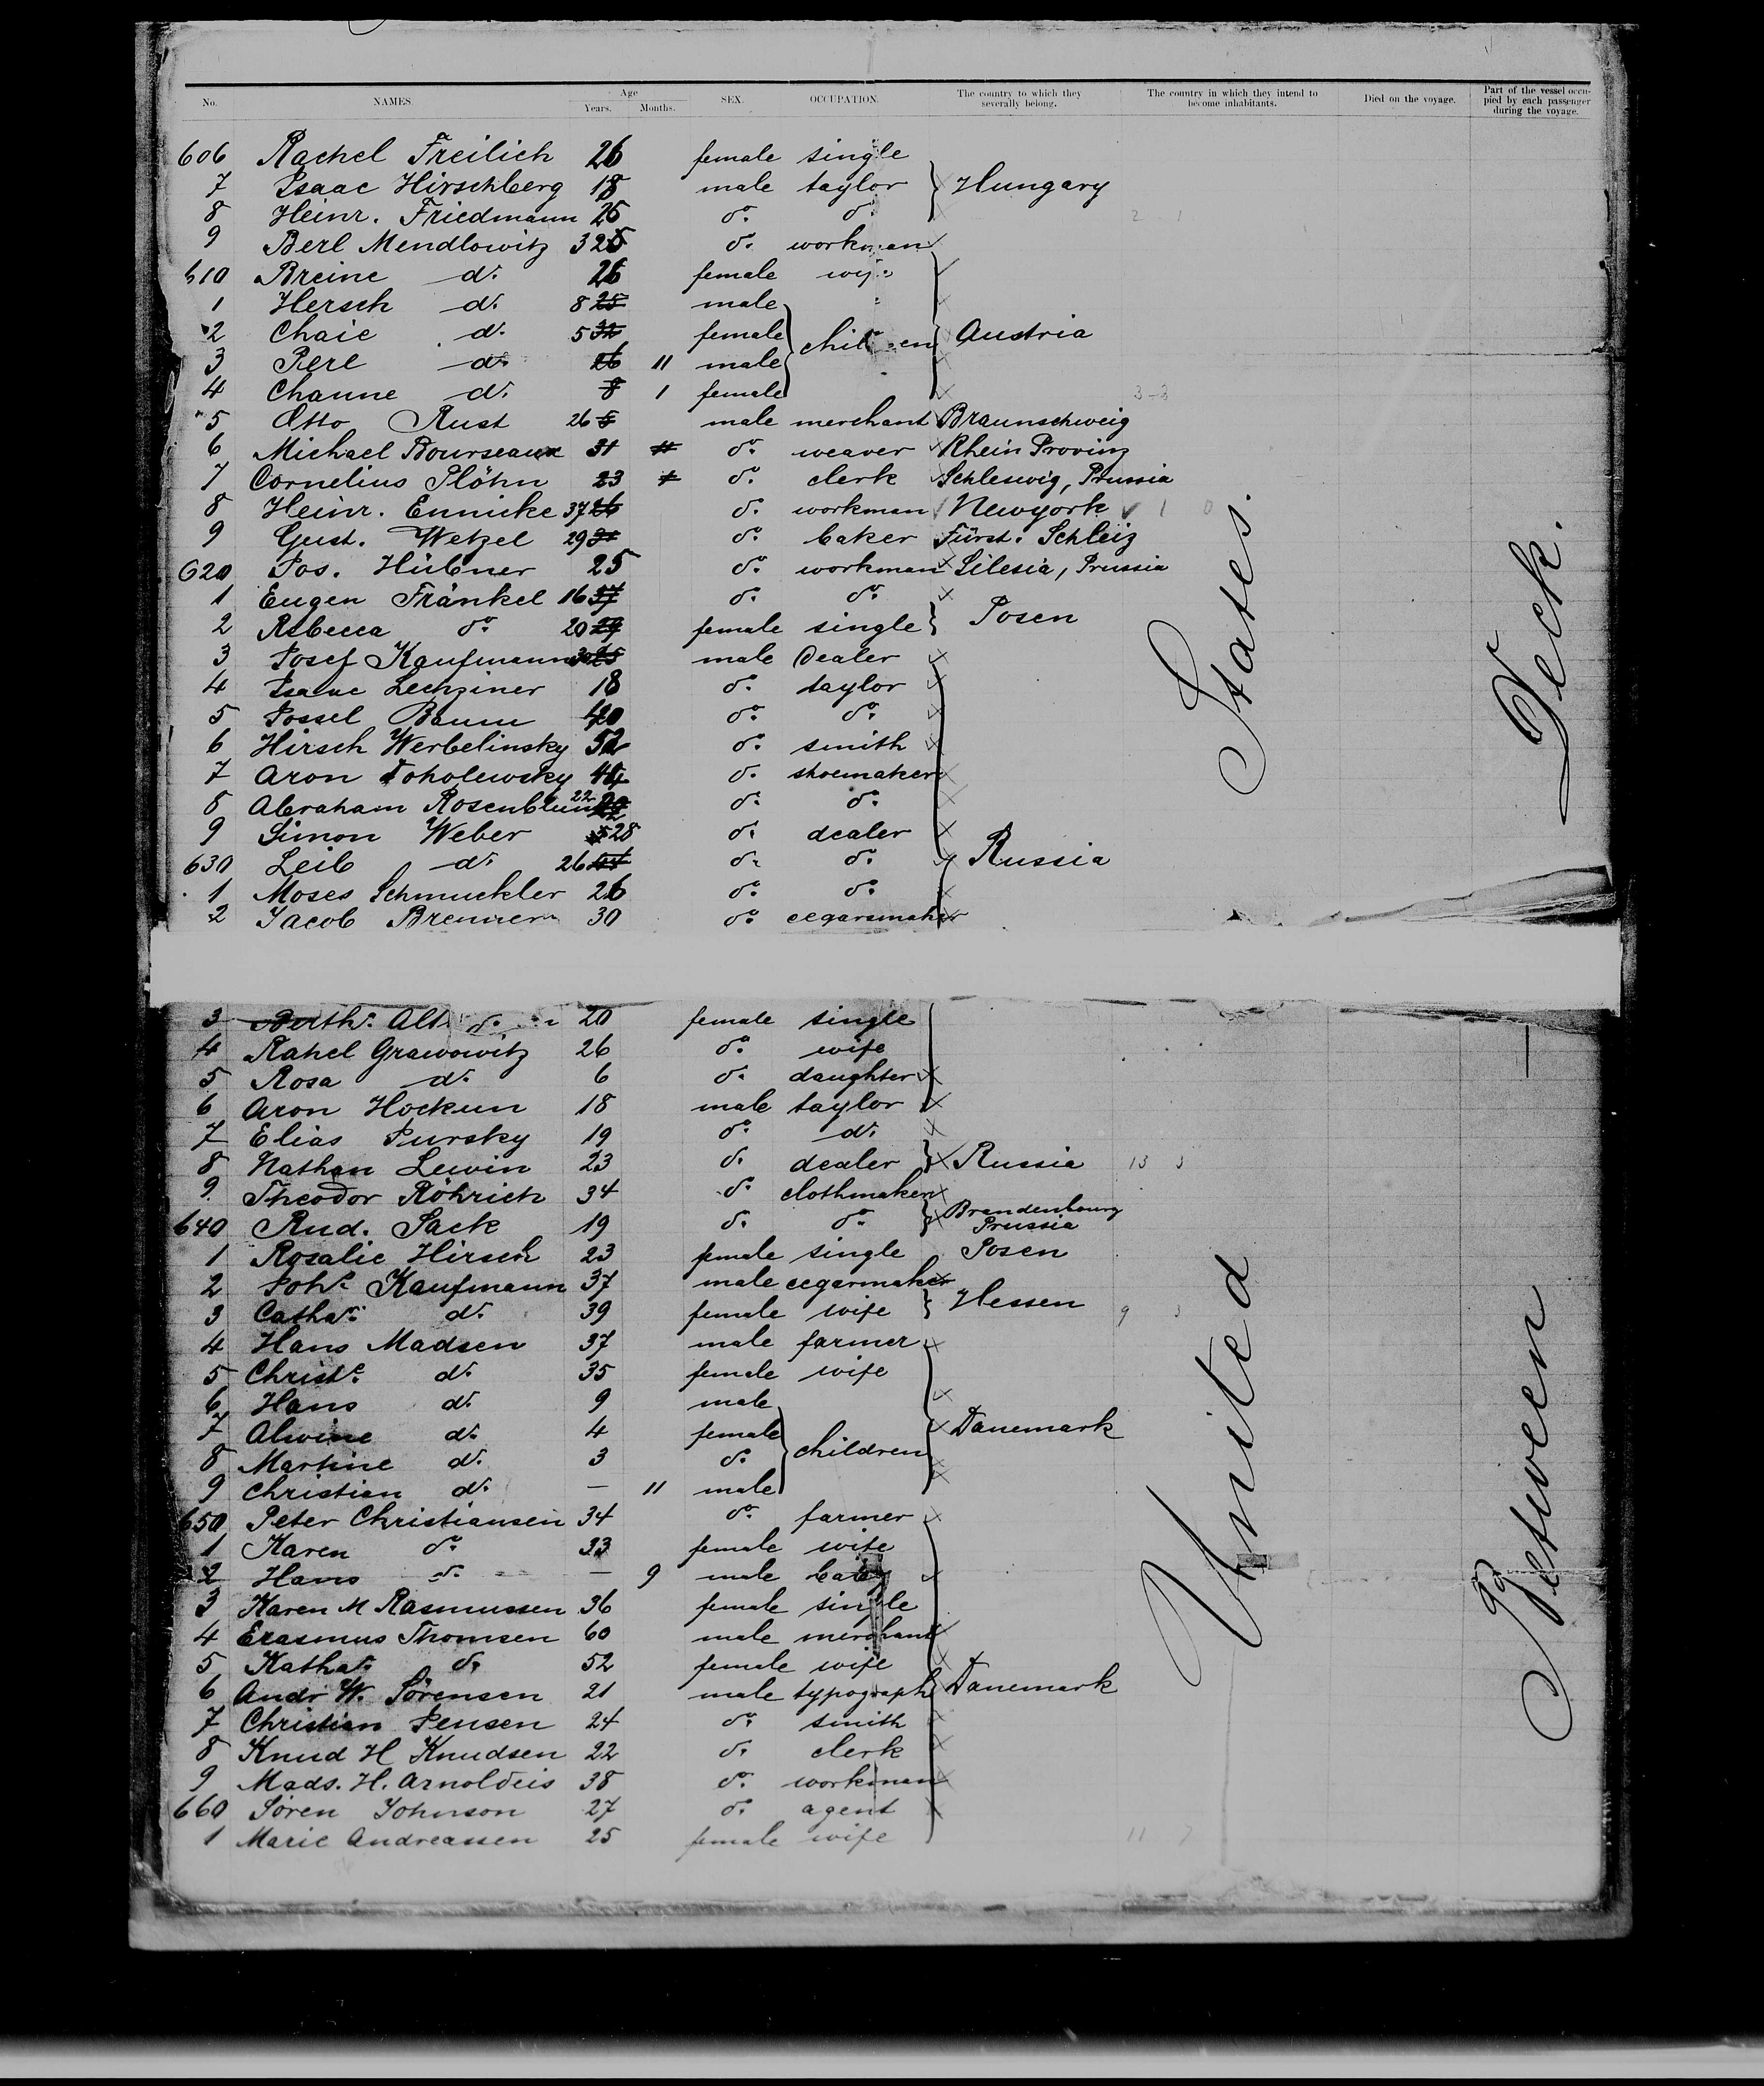 No. NAMES. Age Years. Months. SEX. OCCUPATION. The country to which they severally belong. The country in which they intend to become inhabitants. Died on the voyage. Part of the vessel occupied by each passenger during the voyage.
606 Rachel Freilich 26 female single
7 Isaac Hirschberg 18 male taylor Hungary
8 Heinr. Friedmann 25 do. do.
9 Berl Mendlowitz 32 do. workman
610 Breine do. 26 female wife
1 Hersch do. 8 male
2 Chaie do. 5 female children Austria
3 Perl do. 11 male
4 Channe do. 1 female
5 Otto Rust 26 male merchant Braunschweig
6 Michael Bourseaux 31 do. weaver Rhein Provinz
7 Cornelius Plöhn 23 do. clerk Schleswig, Prussia
8 Heinr. Ennicke 37 do. workman Newyork
9 Gust. Wetzel 29 do. baker Fürst. Schleiz
620 Jos. Hübner 25 do. workman Silesia, Prussia
1 Eugen Fränkel 16 do. do.
2 Rebecca do. 20 female single Posen
3 Josef Kaufmann male Dealer
4 Isaac Lenziner 18 do. taylor
5 Jossel Baum do. do.
6 Hirsch Werbelinsky 52 do. smith
7 Aron do. shoemaker
8 Abraham Rosenblum 22 do. do.
9 Simon Weber 28 do. dealer
630 Leib do. 26 do. do. Russia
1 Moses Schmuckler 26 do. do.
2 Jacob Brenner 30 do. cegarsmaker
3 20 female single
4 Rahel Grawowitz 26 do. wife
5 Rosa do. 6 do. daughter
6 Aron Hockun 18 male taylor
7 Elias Pursky 19 do. do.
8 Nathan Lewin 23 do. dealer Russia
9 Theodor Röhrich 34 do. clothmaker
640 Rud. Sack 19 do. do. Brandenbourg Prussia
1 Rosalie Hirsch 23 female single Posen
2 Johs. Kaufmann 37 male cegarmaker
3 Catha. do. 39 female wife Hessen
4 Hans Madsen 37 male farmer
5 Christe. do. 35 female wife
6 Hans do. 9 male
7 Alwine do. 4 female children Danemark
8 Martine do. 3 do.
9 Christian do. — 11 male
650 Peter Christiansen 34 do. farmer
1 Karen do. 33 female wife
2 Hans do. — 9 male baby
3 Karen M Rasmussen 36 female single
4 Erasmus Thomsen 60 male merchant
5 Katha. do. 52 female wife
6 Andr W. Sörensen 21 male typograph Danemark
7 Christian Jensen 24 do. smith
8 Knud H Knudsen 22 do. clerk
9 Mads. H. Arnoldeis 38 do. workman
660 Sören Johnson 27 do. agent
1 Marie Andreassen 25 female wife
United States.
Between Deck.